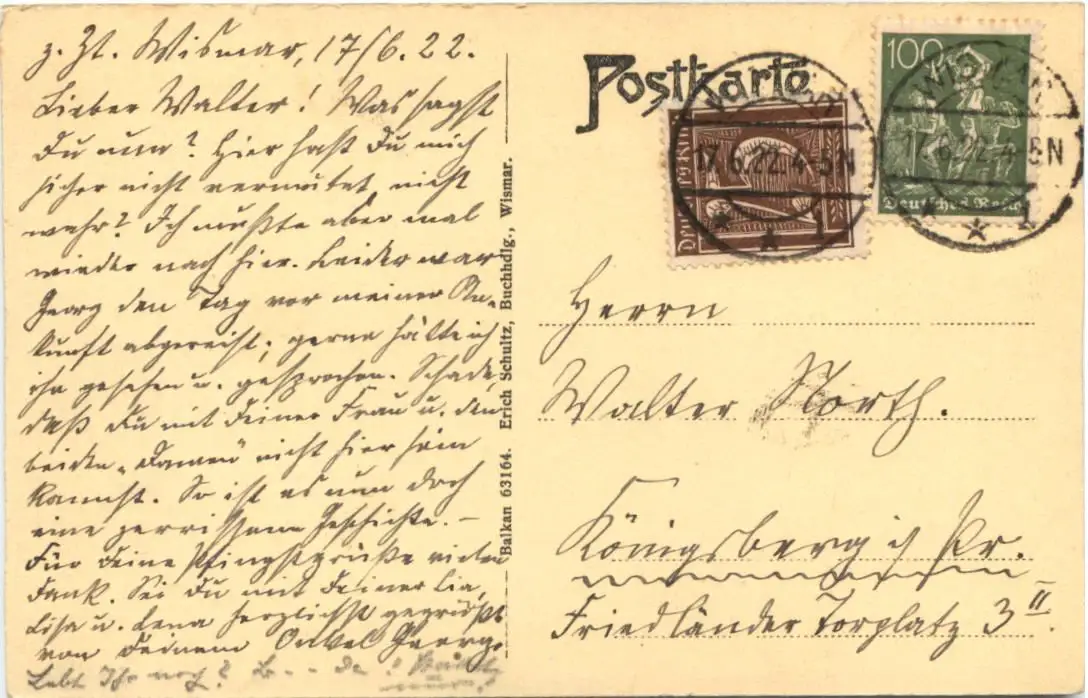 z. Zt. Wismar, 17/6. 22.
Lieber Walter! Was sagst
Du nun? Hier hast Du mich
sicher nicht vermutet, nicht
wahr? Ich mußte aber mal
wieder nach hier. Leider war
Georg den Tag vor meiner An-
kunft abgereist; gerne hätte ich
ihn gesehen u. gesprochen. Schade,
daß Du mit Deiner Frau u. den
beiden „Damen" nicht hier sein
kannst. So ist es nun doch
eine zerrissene Geschichte. –
Für Deine Pfingstgrüße vielen
Dank. Sei Du mit Deiner Lia,
Lisa u. Lena herzlichst gegrüßt
von Deinem Onkel Georg.
Lebt Ihr noch?
Balkan 63164. Erich Schultz, Buchhdlg., Wismar.
Postkarte
100
Deutsches Reich
17.6.22.4-5N
1
17.6.22.4-5N
1
Herrn
Walter North.
Königsberg i/ Pr.
Friedländer Torplatz 3 II